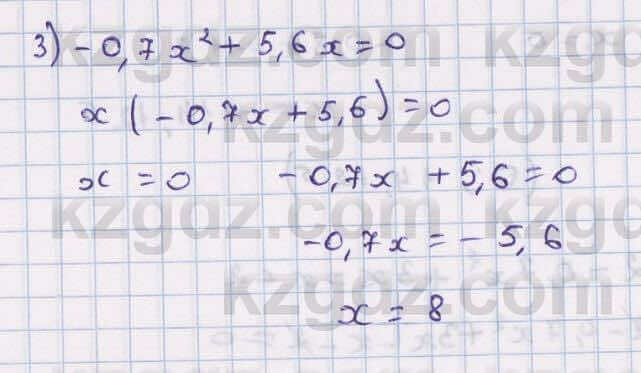 3) -0,7x² + 5,6x = 0
x (-0,7x + 5,6) = 0
x = 0 -0,7x + 5,6 = 0
-0,7x = -5,6
x = 8
kzgdz.com
kzgdz.com
kzgdz.com
kzgdz.com